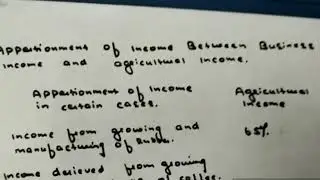 Apportionment of Income Between Business
Income and agricultural Income.
Apportionment of Income
in certain cases.
Agricultural
Income
Income from growing and
manufacturing of Rubber.
65%
Income derived from growing
of coffee.